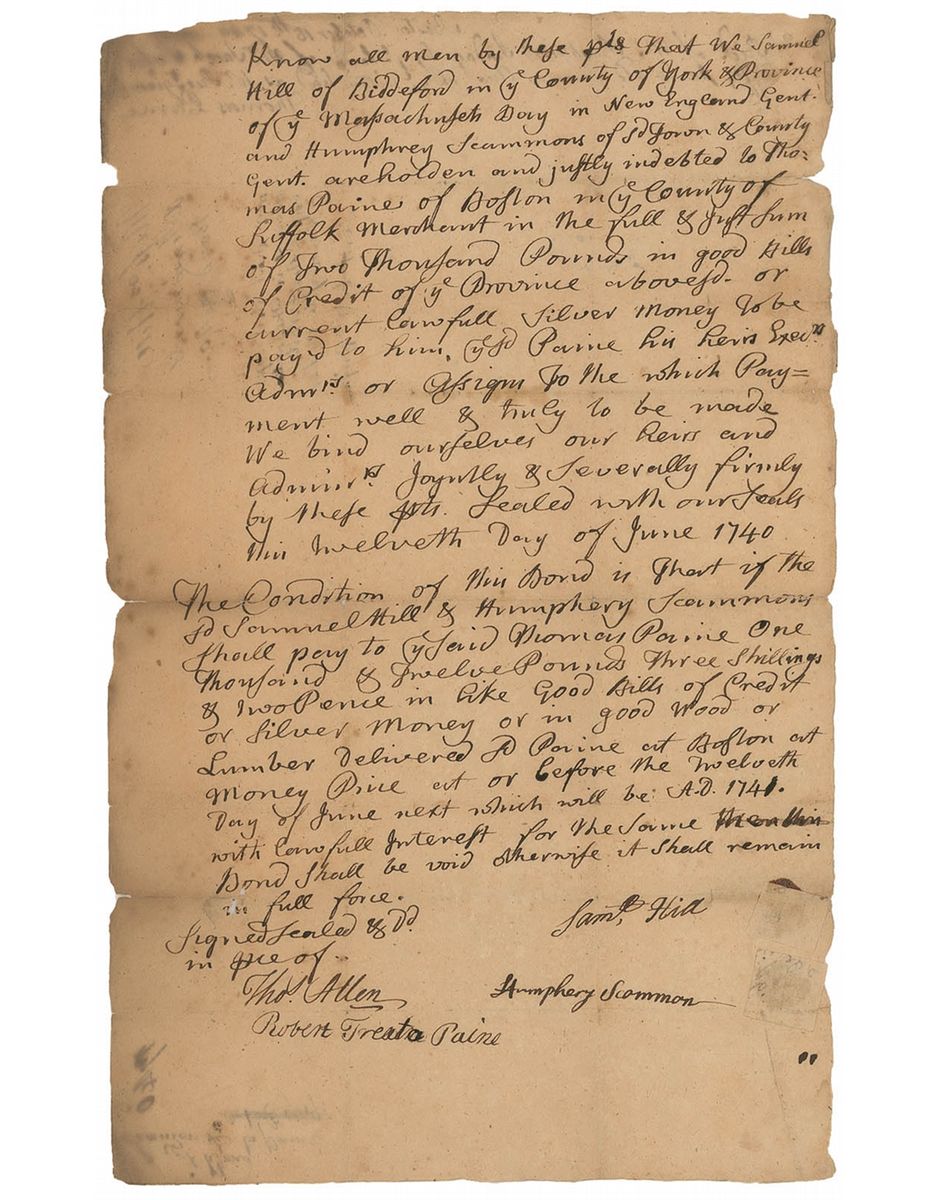 Know all men by these pts That We Samuel
Hill of Biddeford in ye County of York & Province
of ye Massachusets Bay in New England Gent.
and Humphrey Scammons of sd Town & County
Gent. are holden and justly indebted to Tho=
mas Paine of Boston in ye County of
Suffolk Merchant in the full & Just Sum
of Two Thousand Pounds in good Bills
of Credit of ye Province abovesd. or
current lawfull Silver Money To be
pay'd to him, ye sd Paine his heirs Execrs
Admrs or Assigns To the which Pay=
ment well & truly to be made
We bind ourselves our heirs and
Adminrs. Joyntly & Severally firmly
by these pts. Sealed with our Seals
this Twelveth Day of June 1740
The Condition of this Bond is That if the
sd Samuel Hill & Humphery Scammons
shall pay to ye said Thomas Paine One
Thousand & Twelve Pounds Three Shillings
& Two Pence in like Good Bills of Credit
or Silver Money or in good Wood or
Lumber Delivered sd Paine at Boston at
Money Price at or before the Twelveth
Day of June next which will be A.D. 1741.
with lawfull Interest for the Same Then this
Bond Shall be void otherwise it Shall remain
in full force.
Signed Sealed & Dd
in pce of
Saml. Hill
Thos. Allen
Humphery Scammon
Robert Treat Paine